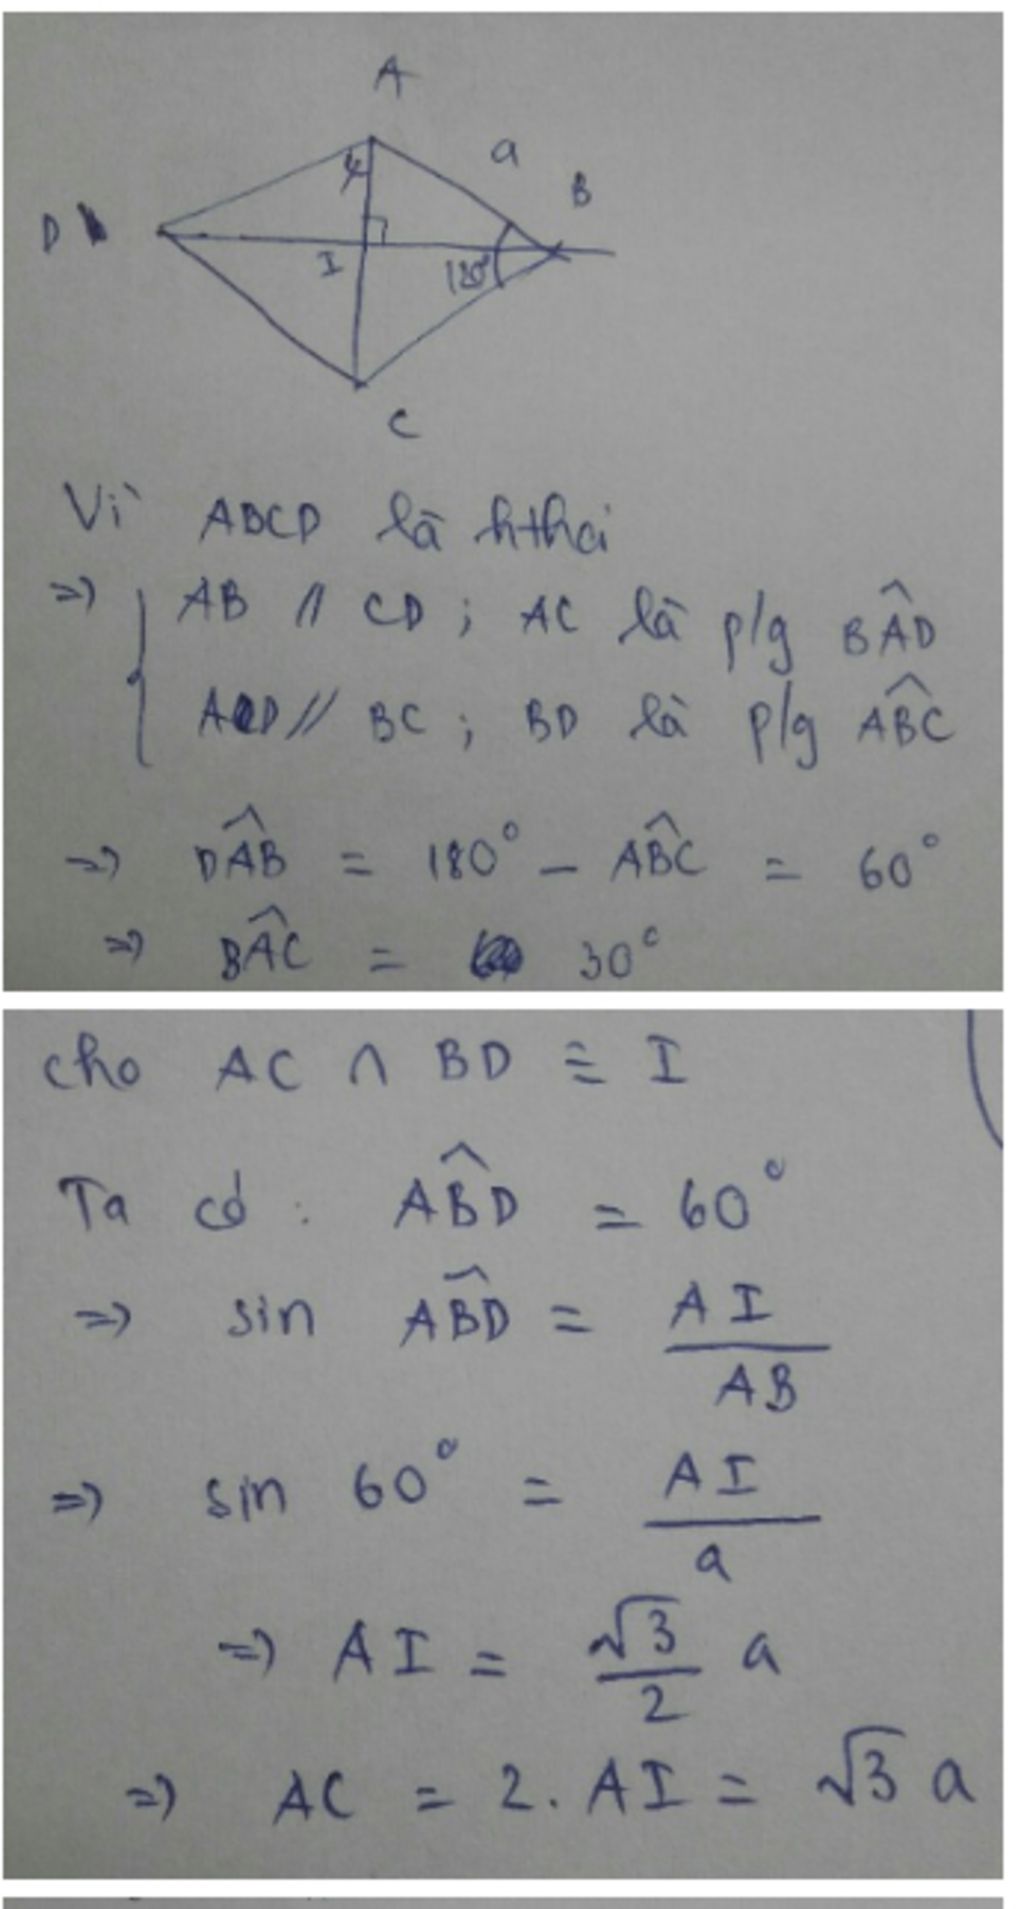 A
a
B
D
I
120°
C
Vì ABCD là hthoi
=> { AB // CD ; AC là p/g BÂD
AD // BC ; BD là p/g AB̂C
=> DÂB = 180° - AB̂C = 60°
=> BÂC = 30°
cho AC ∩ BD ≡ I
Ta có : AB̂D = 60°
=> sin AB̂D = AI / AB
=> sin 60° = AI / a
=> AI = √3/2 a
=> AC = 2. AI = √3 a